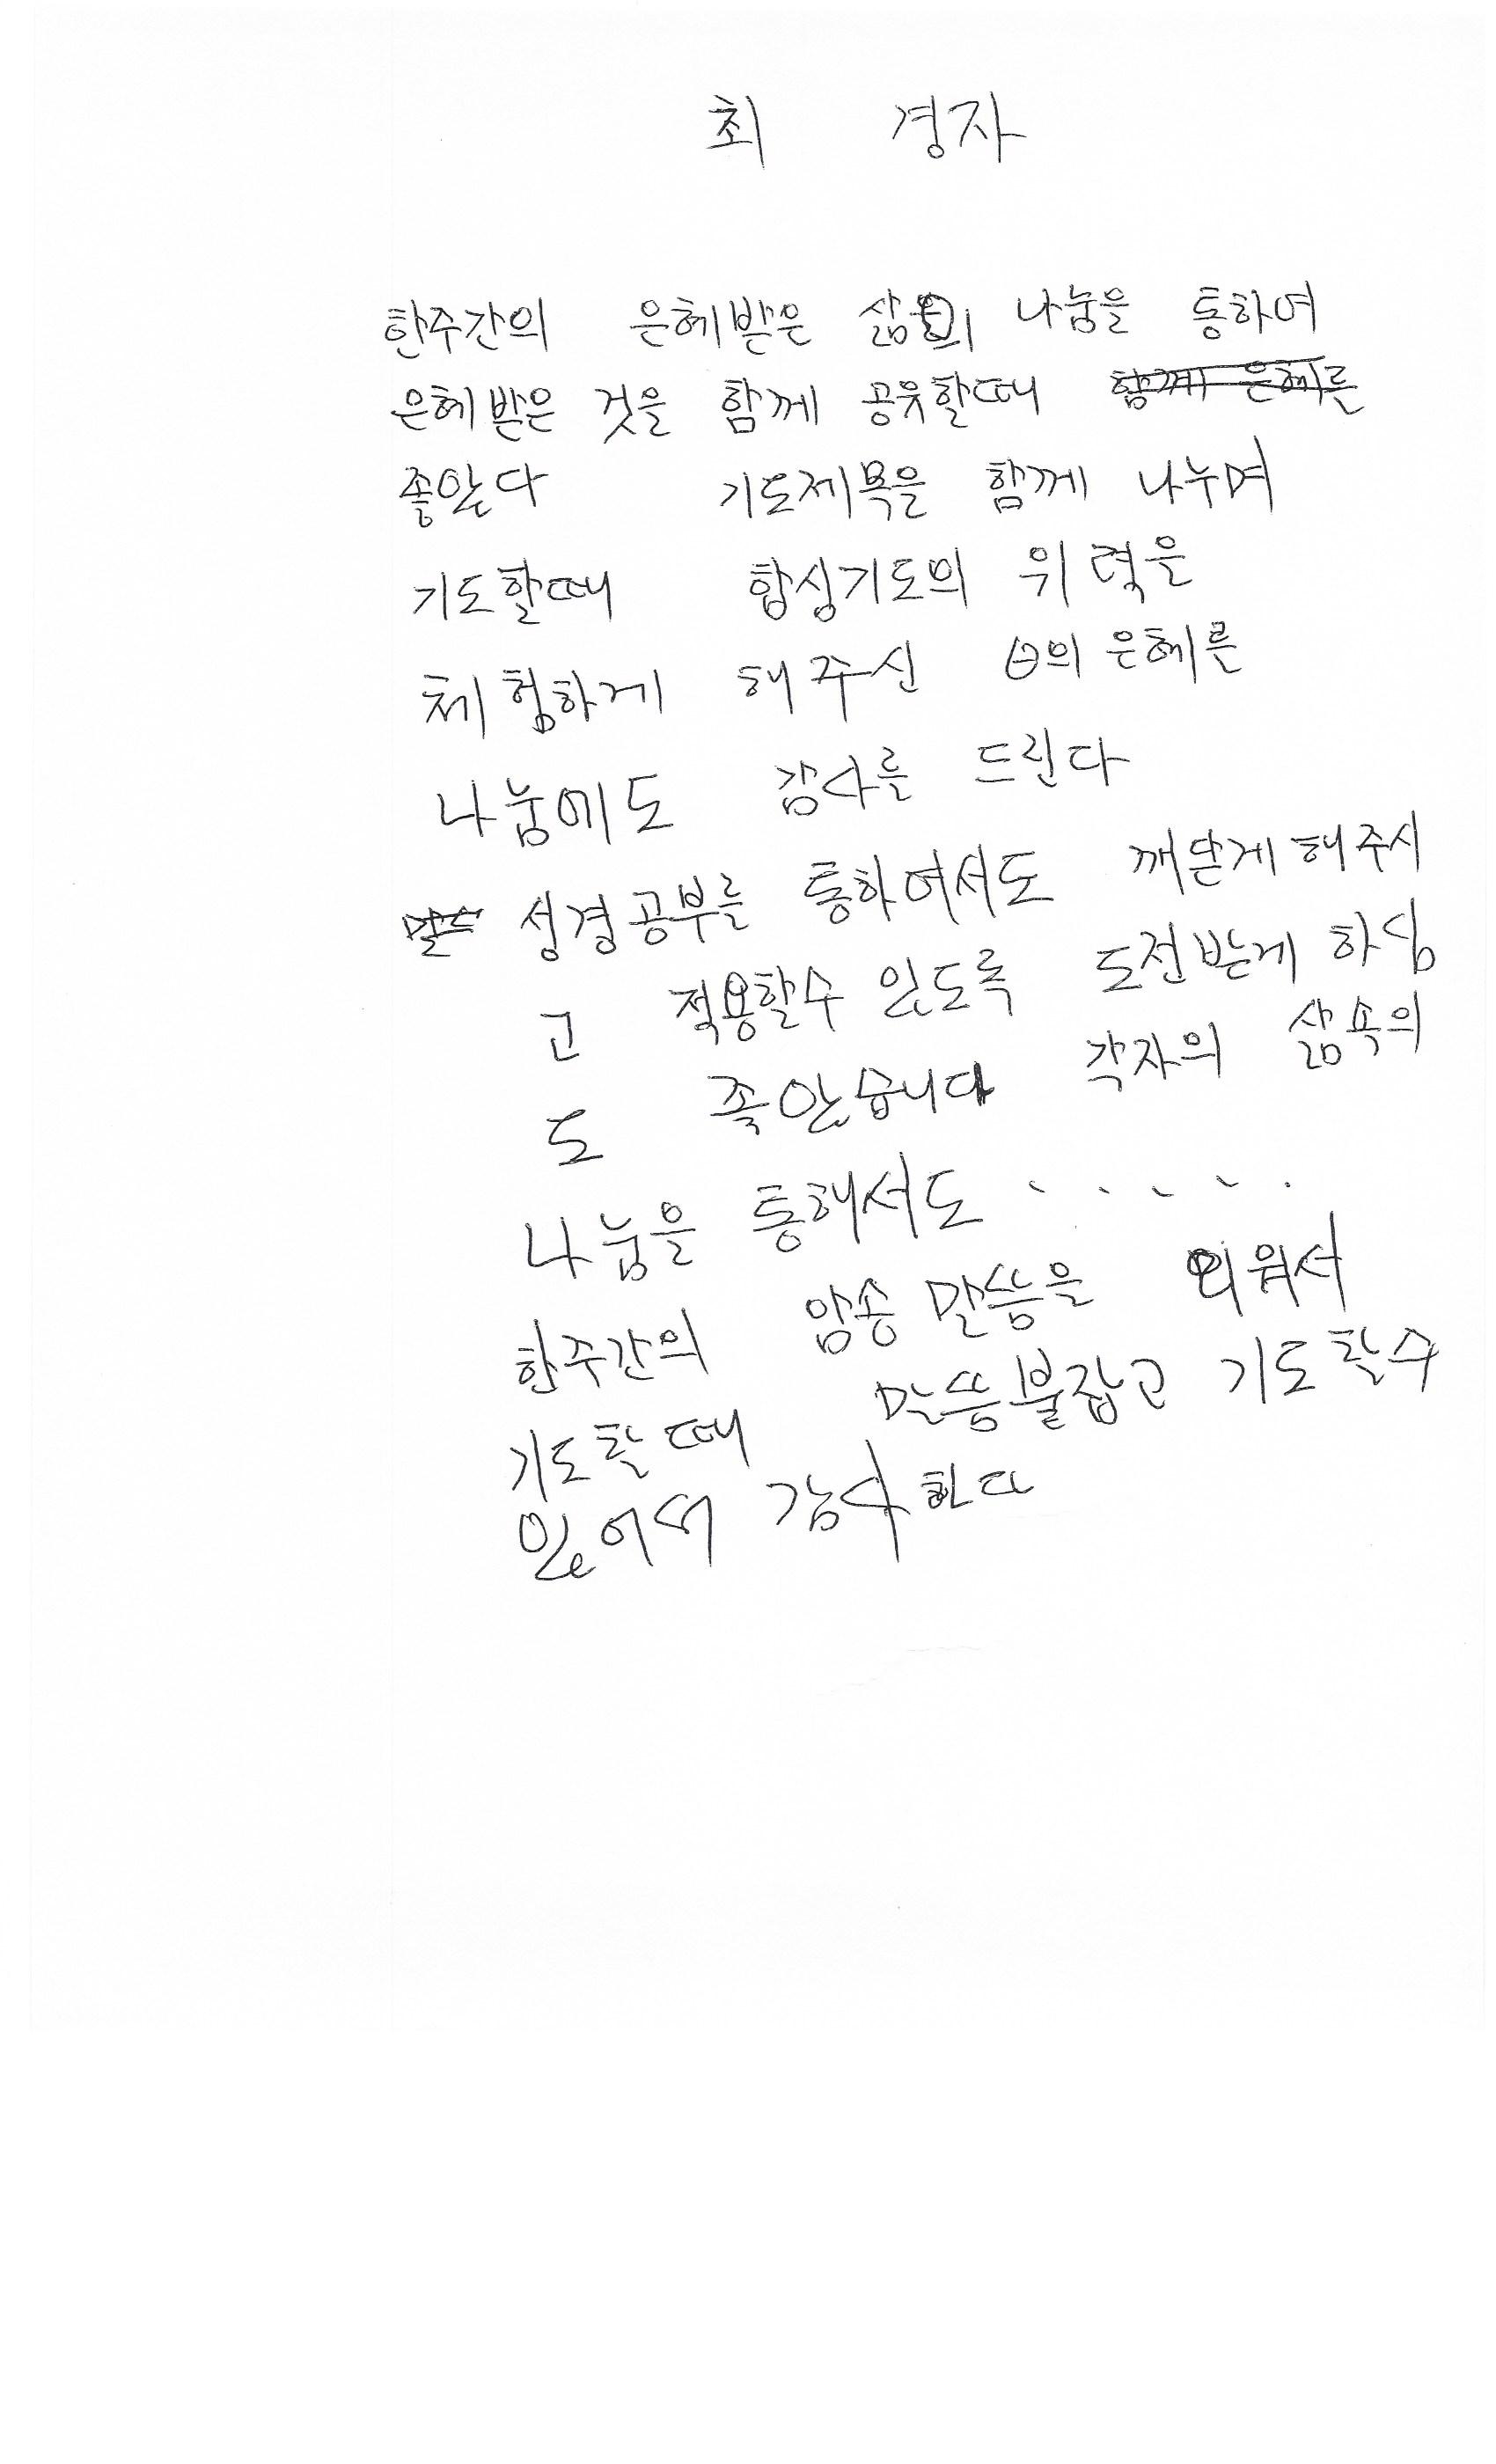 최 경자
한주간의 은혜받은 삶의 나눔을 통하여
은혜받은 것을 함께 공유할때 함께 은혜를
좋았다 기도제목을 함께 나누며
기도할때 합심기도의 위력을
체험하게 해주신 의 은혜를
나눔에도 감사를 드린다
말쓰 성경공부를 통하여서도 깨닫게 해주시
고 적용할수 있도록 도전받게 하심
도 좋았습니다 각자의 삶속의
나눔을 통해서도 . . . . .
한주간의 암송 말씀을 외워서
기도할때 말씀붙잡고 기도할수
있어서 감사하다